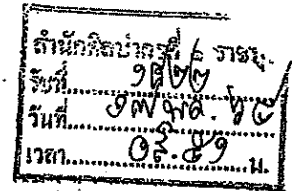 สำนักศิลปากรที่ ๑ ราชบุ.
รับที่ ๑๕๒๒
วันที่ ๑๗ พ.ค. ๖๕
เวลา ๐๙.๕๑ น.